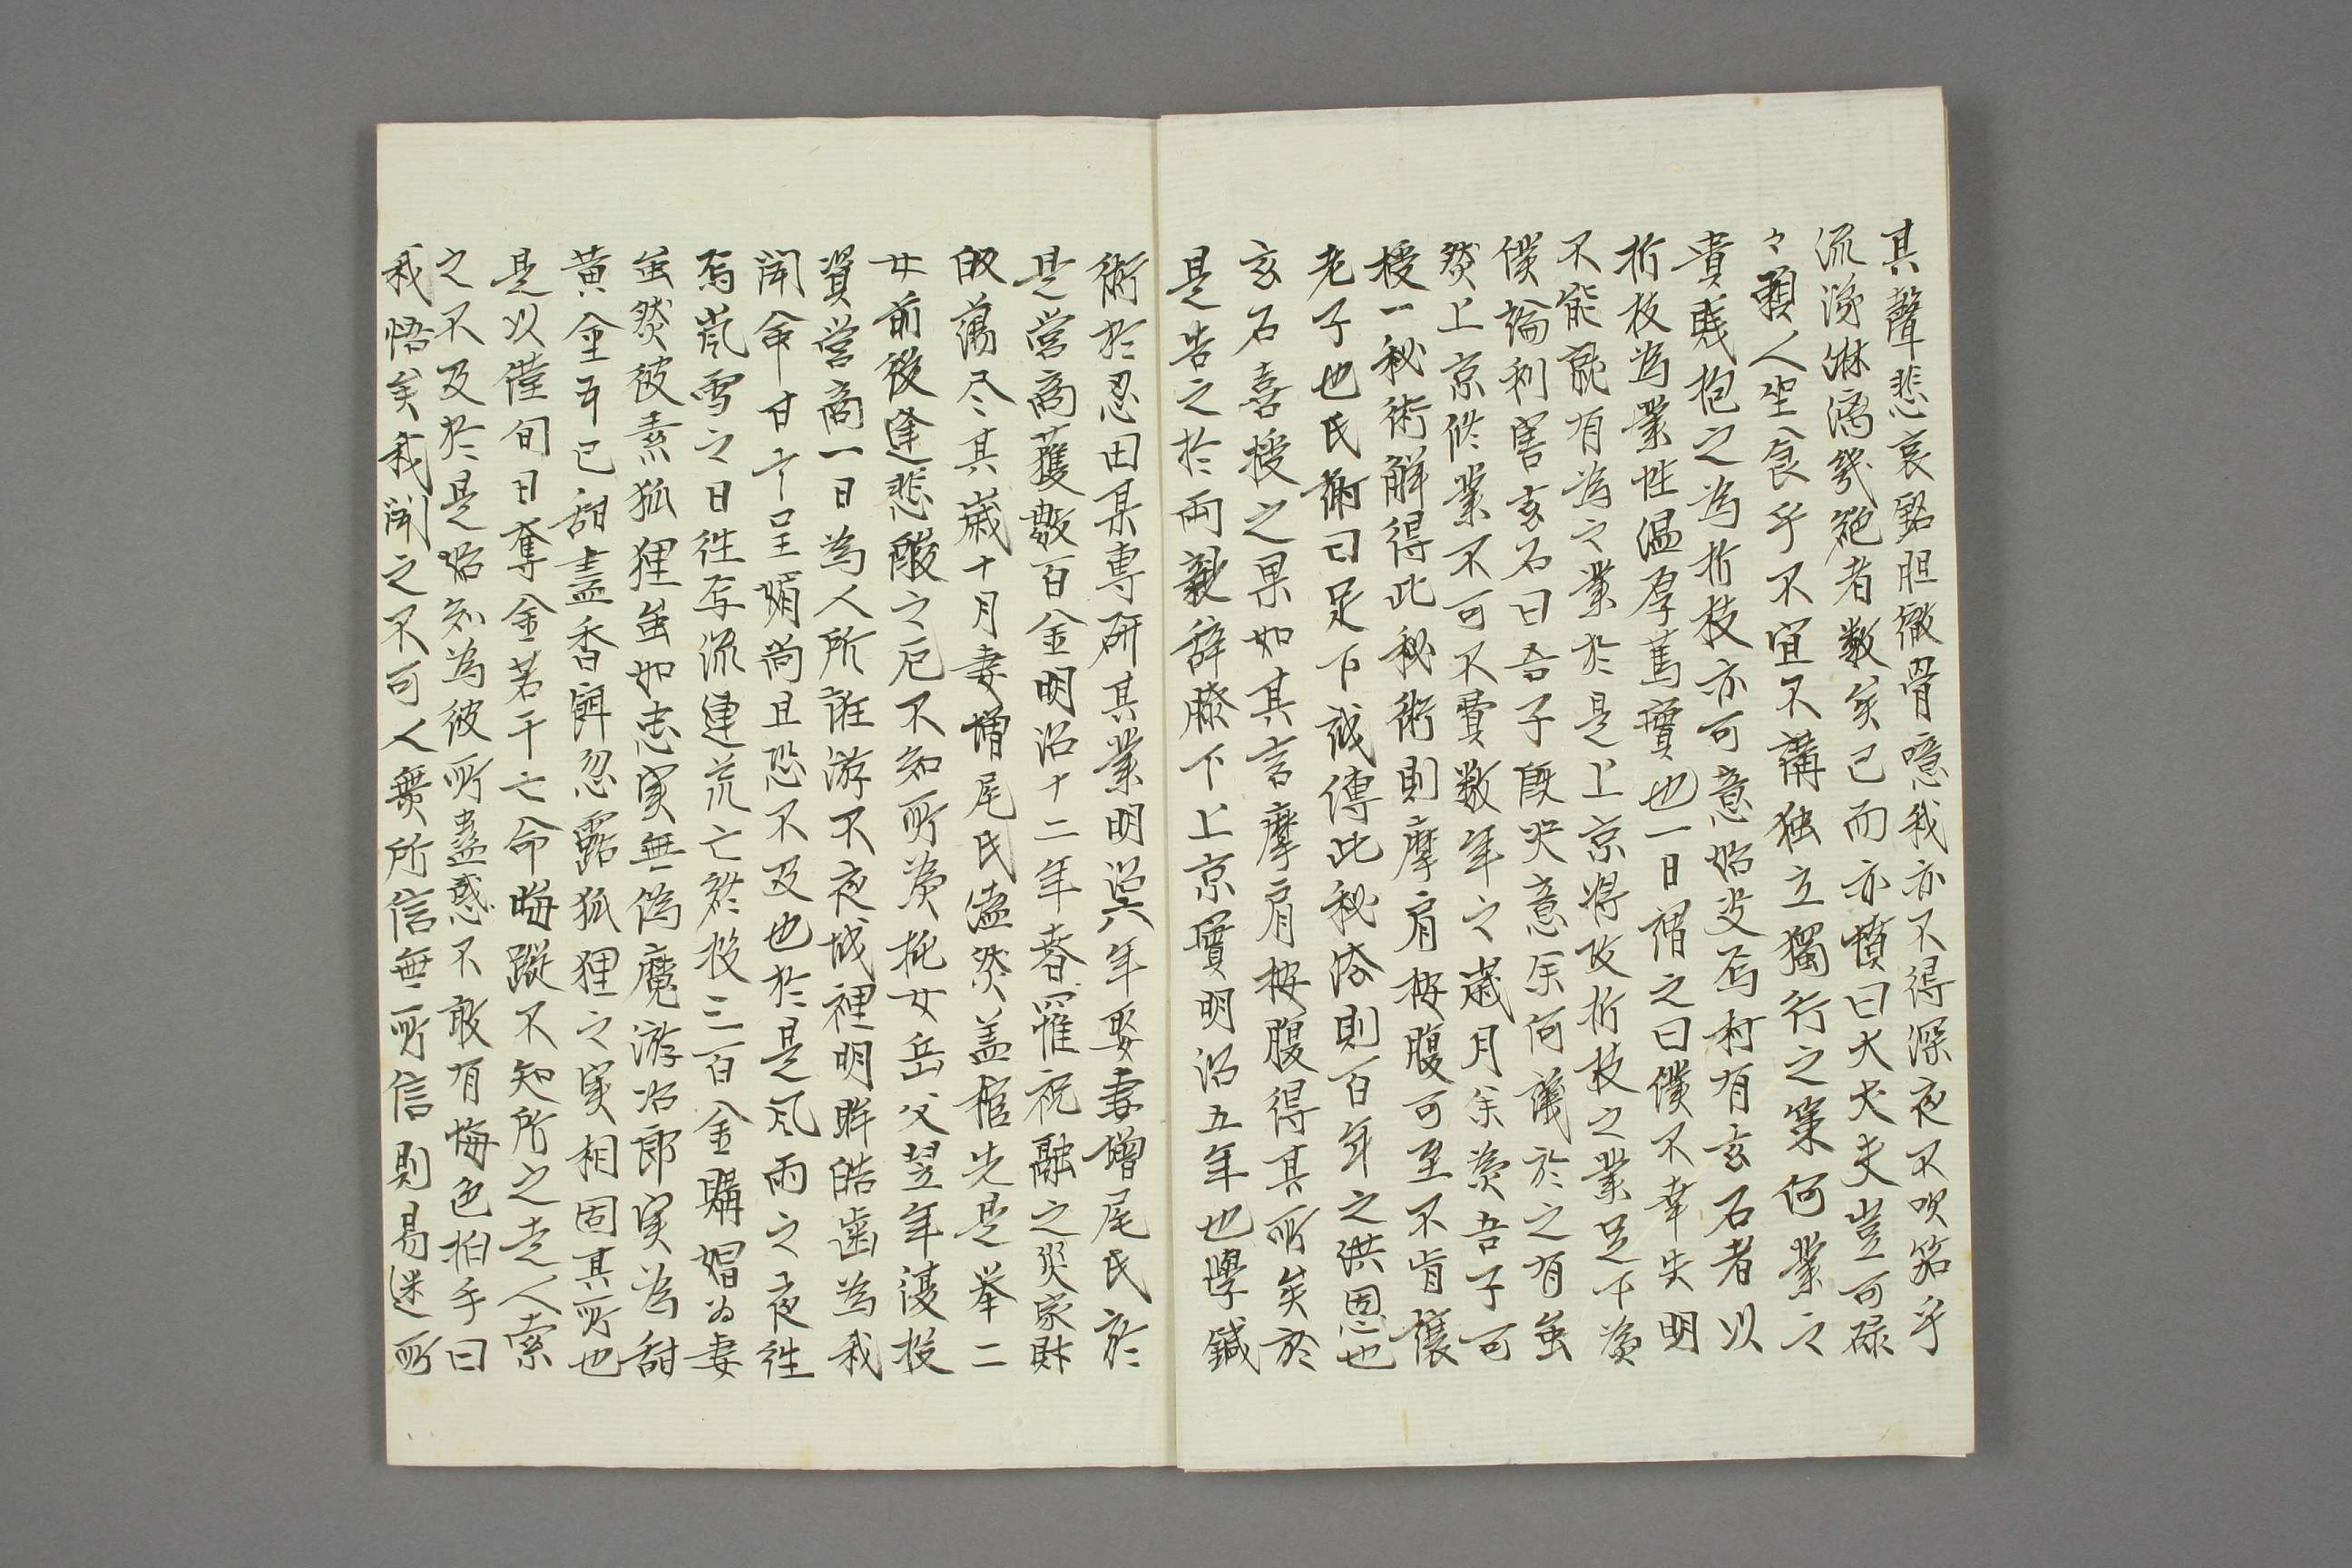 其聲悲哀銘胆徹骨噫我亦不得深夜不吹笛乎
流涕淋漓幾絶者数矣已而亦憤曰大丈夫豈可碌
々頼人坐食乎不宜不講独立獨行之策何業之
貴賎抱之為折枝亦可意始決焉村有玄石者以
折枝為業性温厚篤實也一日謂之曰僕不幸失明
不能就有為之業於是上京将攻折枝之業足下為
僕論利害玄石曰吾子既决意余何議於之有虽
然上京修業不可不費数年之歳月余為吾子可
授一秘術解得此秘術則摩肩按腹可至不肯讓
老子也氏謝曰足下誠傳此秘法則百年之洪恩也
玄石喜授之果如其言摩肩按腹得其所矣於
是告之於両親辞膝下上京實明治五年也學鍼
術於忍田某専研其業明治六年娶妻増尾氏於
是営商獲数百金明治十二年春罹祝融之災家財
皈蕩尽其歳十月妻増尾氏溘然盖棺先是挙二
女前後逢悲酸之厄不知所為托女岳父翌年漫投
資営商一日為人所誑游不夜城裡明眸皓歯為我
闻命甘言呈媚尚且恐不及也於是風雨之夜往
焉嵐雪之日往焉流連荒亡終投三百金購娼為妻
虽然彼素狐狸虽如忠実無偽魔游冶郎実為甜
黄金耳已甜盡香餌忽露狐狸之実相固其所也
是以僅旬日奪金若干亡命晦蹤不知所之走人索
之不及於是始知為彼所蠱惑不敢有悔色拍手曰
我悟矣我闻之不可人無所信無所信則易迷所